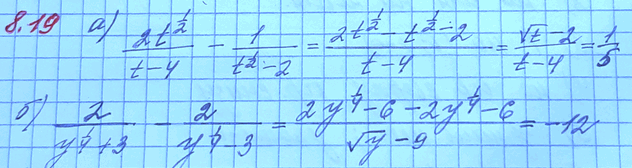 8.19 а) \frac{2t^{\frac{1}{2}}}{t-4} - \frac{1}{t^{\frac{1}{2}}-2} = \frac{2t^{\frac{1}{2}}-t^{\frac{1}{2}}-2}{t-4} = \frac{\sqrt{t}-2}{t-4} = \frac{1}{5}
б) \frac{2}{y^{\frac{1}{4}}+3} - \frac{2}{y^{\frac{1}{4}}-3} = \frac{2y^{\frac{1}{4}}-6-2y^{\frac{1}{4}}-6}{\sqrt{y}-9} = -12